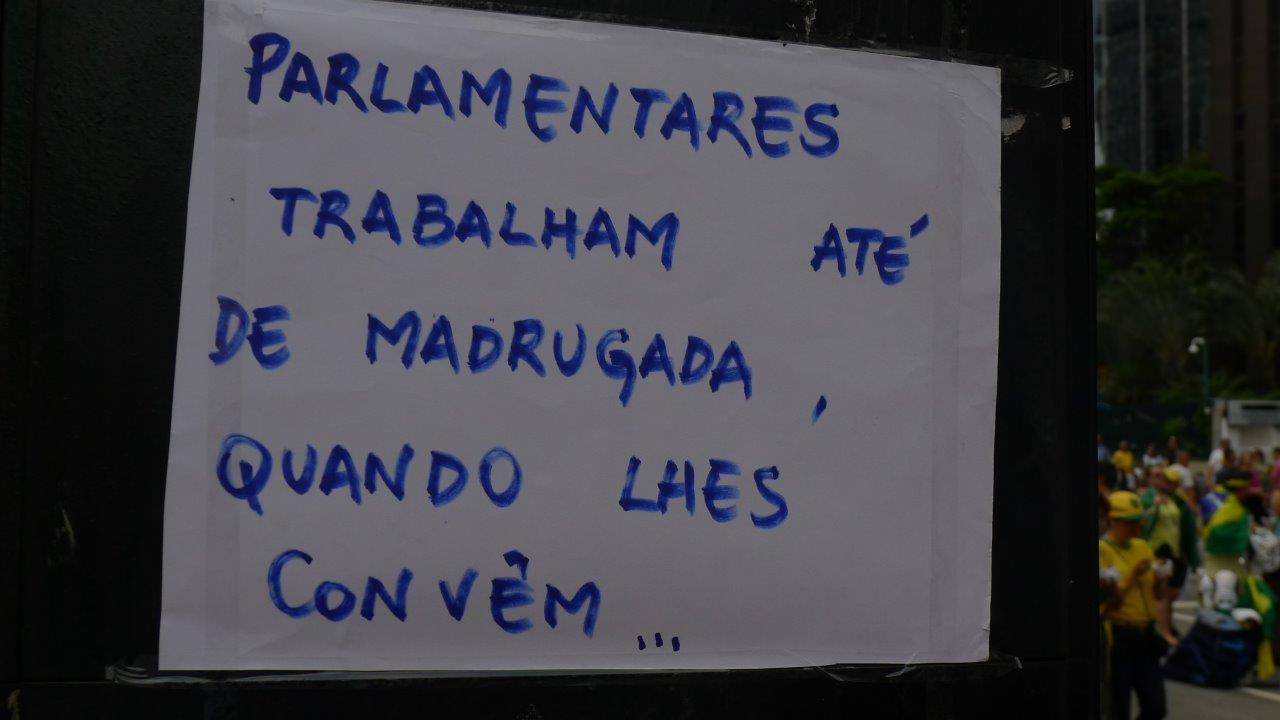 PARLAMENTARES
TRABALHAM ATÉ
DE MADRUGADA,
QUANDO LHES
CONVÊM...